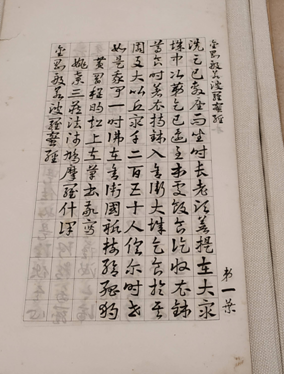 金剛般若波羅蜜經
姚秦三藏法師鳩摩羅什譯
敬寫
如是我聞一時佛在舍衛國祇樹給孤獨
園與大比丘眾千二百五十人俱尔時世
尊食時著衣持鉢入舍衛大城乞食於其
城中次第乞已還至本處飯食訖收衣鉢
洗足已敷座而坐時長老須菩提在大眾
金剛般若波羅蜜經
第一葉